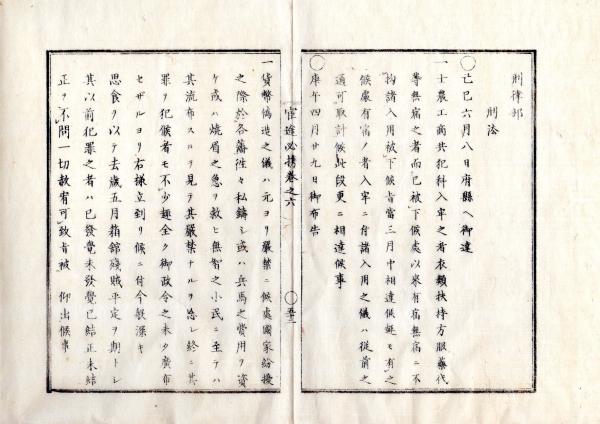 刑律部
刑法
〇己巳六月八日府縣ヘ御達
一士農工商共犯科入牢之者衣類扶持方服藥代
等無宿之者而已被下候處以來有宿無宿ニ不
拘諸入用被下候旨當三月中相達候縡モ有之
候處有宿ノ者入牢ニ付諸入用之儀ハ從前之
通可取計候此段更ニ相達候事
〇庚午四月廿九日御布告
官途必携巻之六
〇五十二
一貨幣偽造之儀ハ元ヨリ嚴禁ニ候處國家紛擾
之際於各藩往々私鑄シ或ハ兵馬之費用ヲ資
ケ或ハ燒眉之急ヲ救ヒ無智之小民ニ至テハ
其流布スルヲ見テ其嚴禁ナルヲ忘レ終ニ其
罪ヲ犯候者モ不少畢全ク御政令之未タ廣布
セザルヨリ右樣立到リ候ニ付今般深キ
思食ヲ以テ去歳五月箱館殘賊平定ヲ期トシ
其以前犯罪之者ハ已發覺未發覺已結正未結
正ヲ不問一切赦宥可致旨被 仰出候事